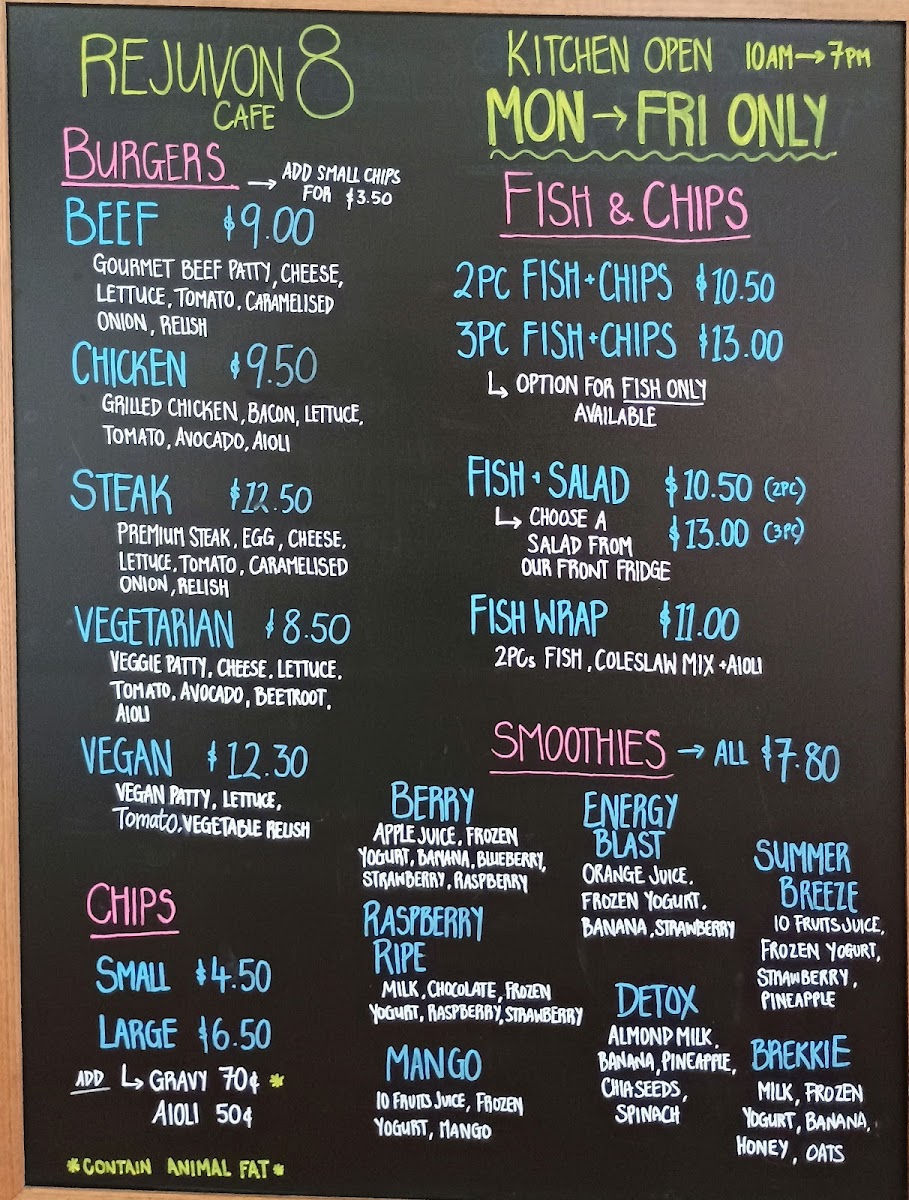 REJUVON 8
CAFE
KITCHEN OPEN 10AM → 7PM
MON → FRI ONLY
BURGERS
→ ADD SMALL CHIPS
FOR $3.50
BEEF $9.00
GOURMET BEEF PATTY, CHEESE,
LETTUCE, TOMATO, CARAMELISED
ONION, RELISH
CHICKEN $9.50
GRILLED CHICKEN, BACON, LETTUCE,
TOMATO, AVOCADO, AIOLI
STEAK $12.50
PREMIUM STEAK, EGG, CHEESE,
LETTUCE, TOMATO, CARAMELISED
ONION, RELISH
VEGETARIAN $8.50
VEGGIE PATTY, CHEESE, LETTUCE,
TOMATO, AVOCADO, BEETROOT,
AIOLI
VEGAN $12.30
VEGAN PATTY, LETTUCE,
Tomato, VEGETABLE RELISH
CHIPS
SMALL $4.50
LARGE $6.50
ADD ↳ GRAVY 70¢ *
AIOLI 50¢
*CONTAIN ANIMAL FAT*
FISH & CHIPS
2PC FISH + CHIPS $10.50
3PC FISH + CHIPS $13.00
↳ OPTION FOR FISH ONLY
AVAILABLE
FISH + SALAD $10.50 (2PC)
$13.00 (3PC)
↳ CHOOSE A
SALAD FROM
OUR FRONT FRIDGE
FISH WRAP $11.00
2PCs FISH, COLESLAW MIX + AIOLI
SMOOTHIES → ALL $7.80
BERRY
APPLE JUICE, FROZEN
YOGURT, BANANA, BLUEBERRY,
STRAWBERRY, RASPBERRY
RASPBERRY
RIPE
MILK, CHOCOLATE, FROZEN
YOGURT, RASPBERRY, STRAWBERRY
MANGO
10 FRUITS JUICE, FROZEN
YOGURT, MANGO
ENERGY
BLAST
ORANGE JUICE,
FROZEN YOGURT,
BANANA, STRAWBERRY
DETOX
ALMOND MILK,
BANANA, PINEAPPLE,
CHIA SEEDS,
SPINACH
SUMMER
BREEZE
10 FRUITS JUICE,
FROZEN YOGURT,
STRAWBERRY,
PINEAPPLE
BREKKIE
MILK, FROZEN
YOGURT, BANANA,
HONEY, OATS